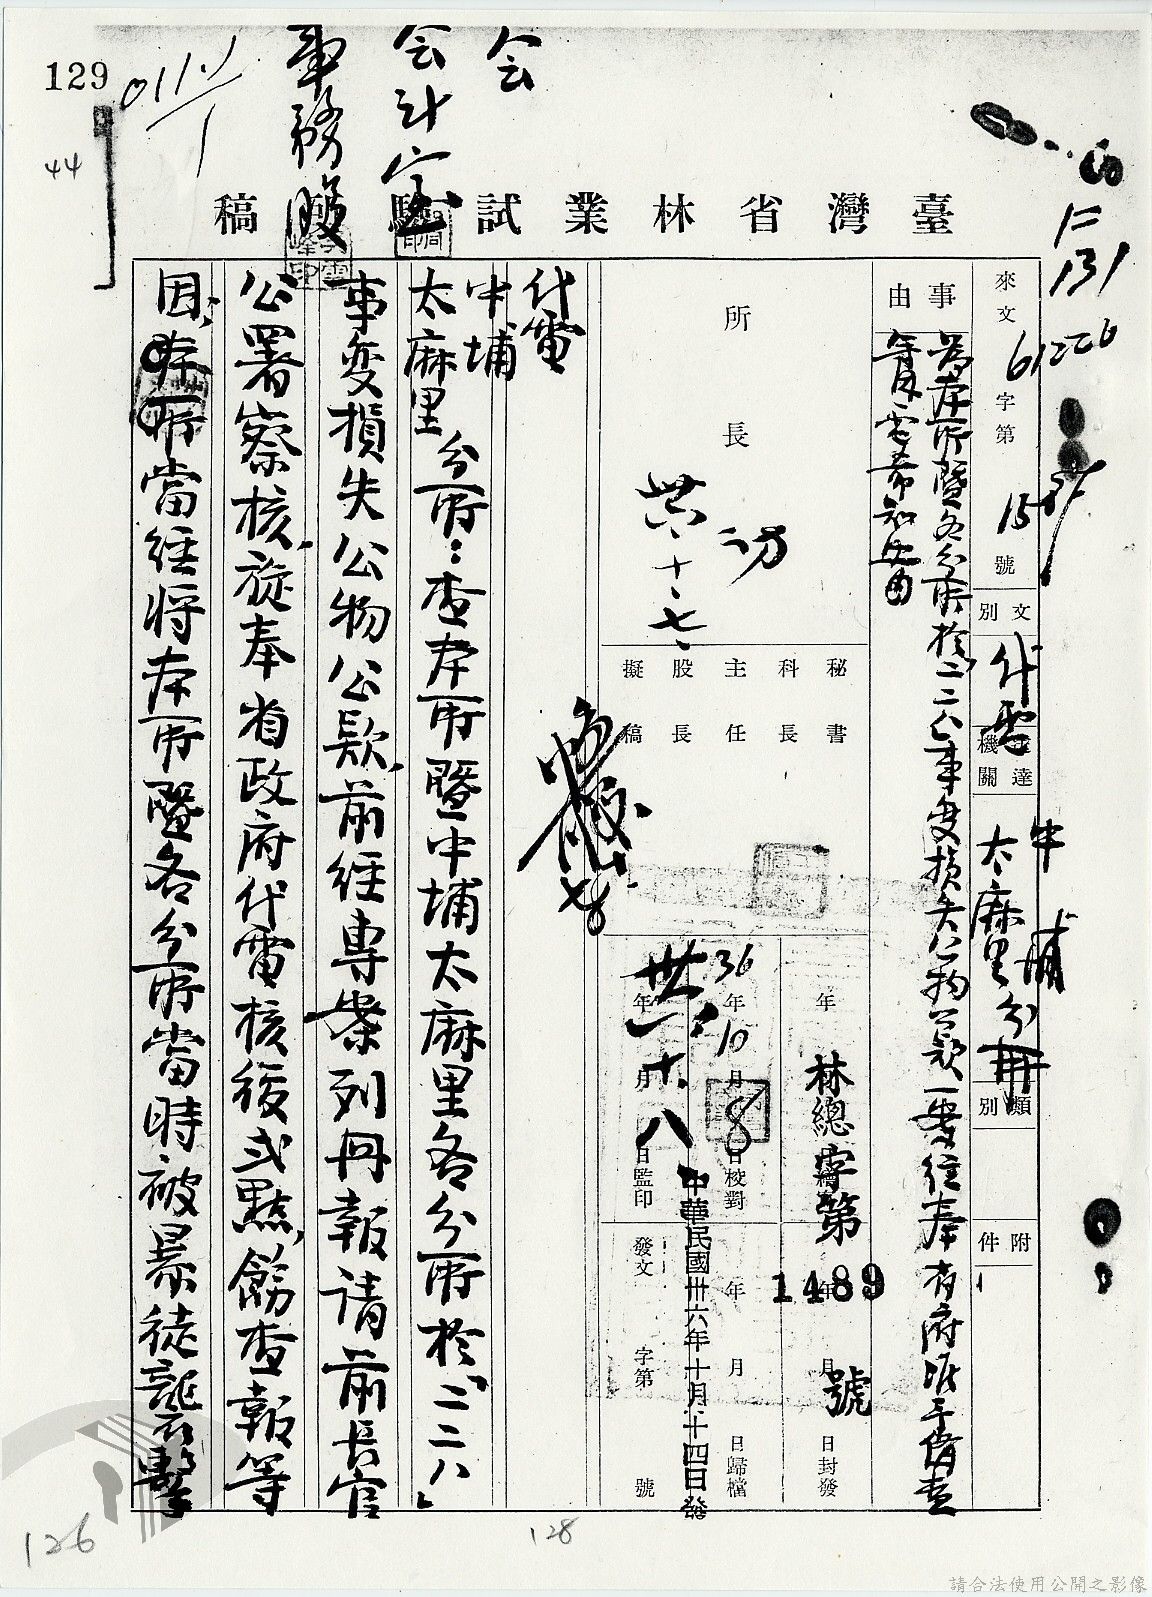 129
44
会
会計室
事務股
臺灣省林業試驗所稿
來文
字第
15
號
文別
代電
送達機關
中埔
太麻里分所
類別
附件
事由
為本所暨各分所於「二二八」事变損失公物公款一案經奉省府准予備查
希知照由
所長
卅六、十、七、
秘書
科長
主任
股長
擬稿
年
月
日封發
36年10月8日校對
年
月
日歸檔
卅六年十月八日監印
發文
字第
號
林總字第
1489
號
中華民國卅六年十月十四日發
代電
中埔
太麻里
分所：查本所暨中埔太麻里各分所於「二二八」
事変損失公物公款，前經專案列冊報請前長官
公署察核，旋奉省政府代電核復弍點，飭查報等
因，本所當經將本所暨各分所當時被暴徒襲擊
126
128
請合法使用公開之影像